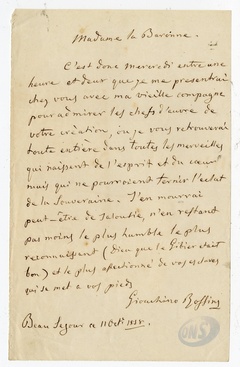 Madame la Baronne.
C'est donc Mercredi entre une
heure et deux que je me presenterai
chez vous avec ma vieille compagne
pour admirer les chefs d'œuvre de
votre création, ou je vous retrouverai
toute entière dans toutes les merveilles
qui naissent de l'esprit et du cœur
mais qui ne pourroient ternir l'eclat
de la Souveraine. J'en mourrai
peut-être de Jalousie, n'en restant
pas moins le plus humble le plus
reconnaissant (dieu que le Gibier etait
bon) et le plus affectionné de vos esclaves
qui se met a vos pieds
Giouchino Rossini
Beau Sejour ce 11 Oct. 1858.